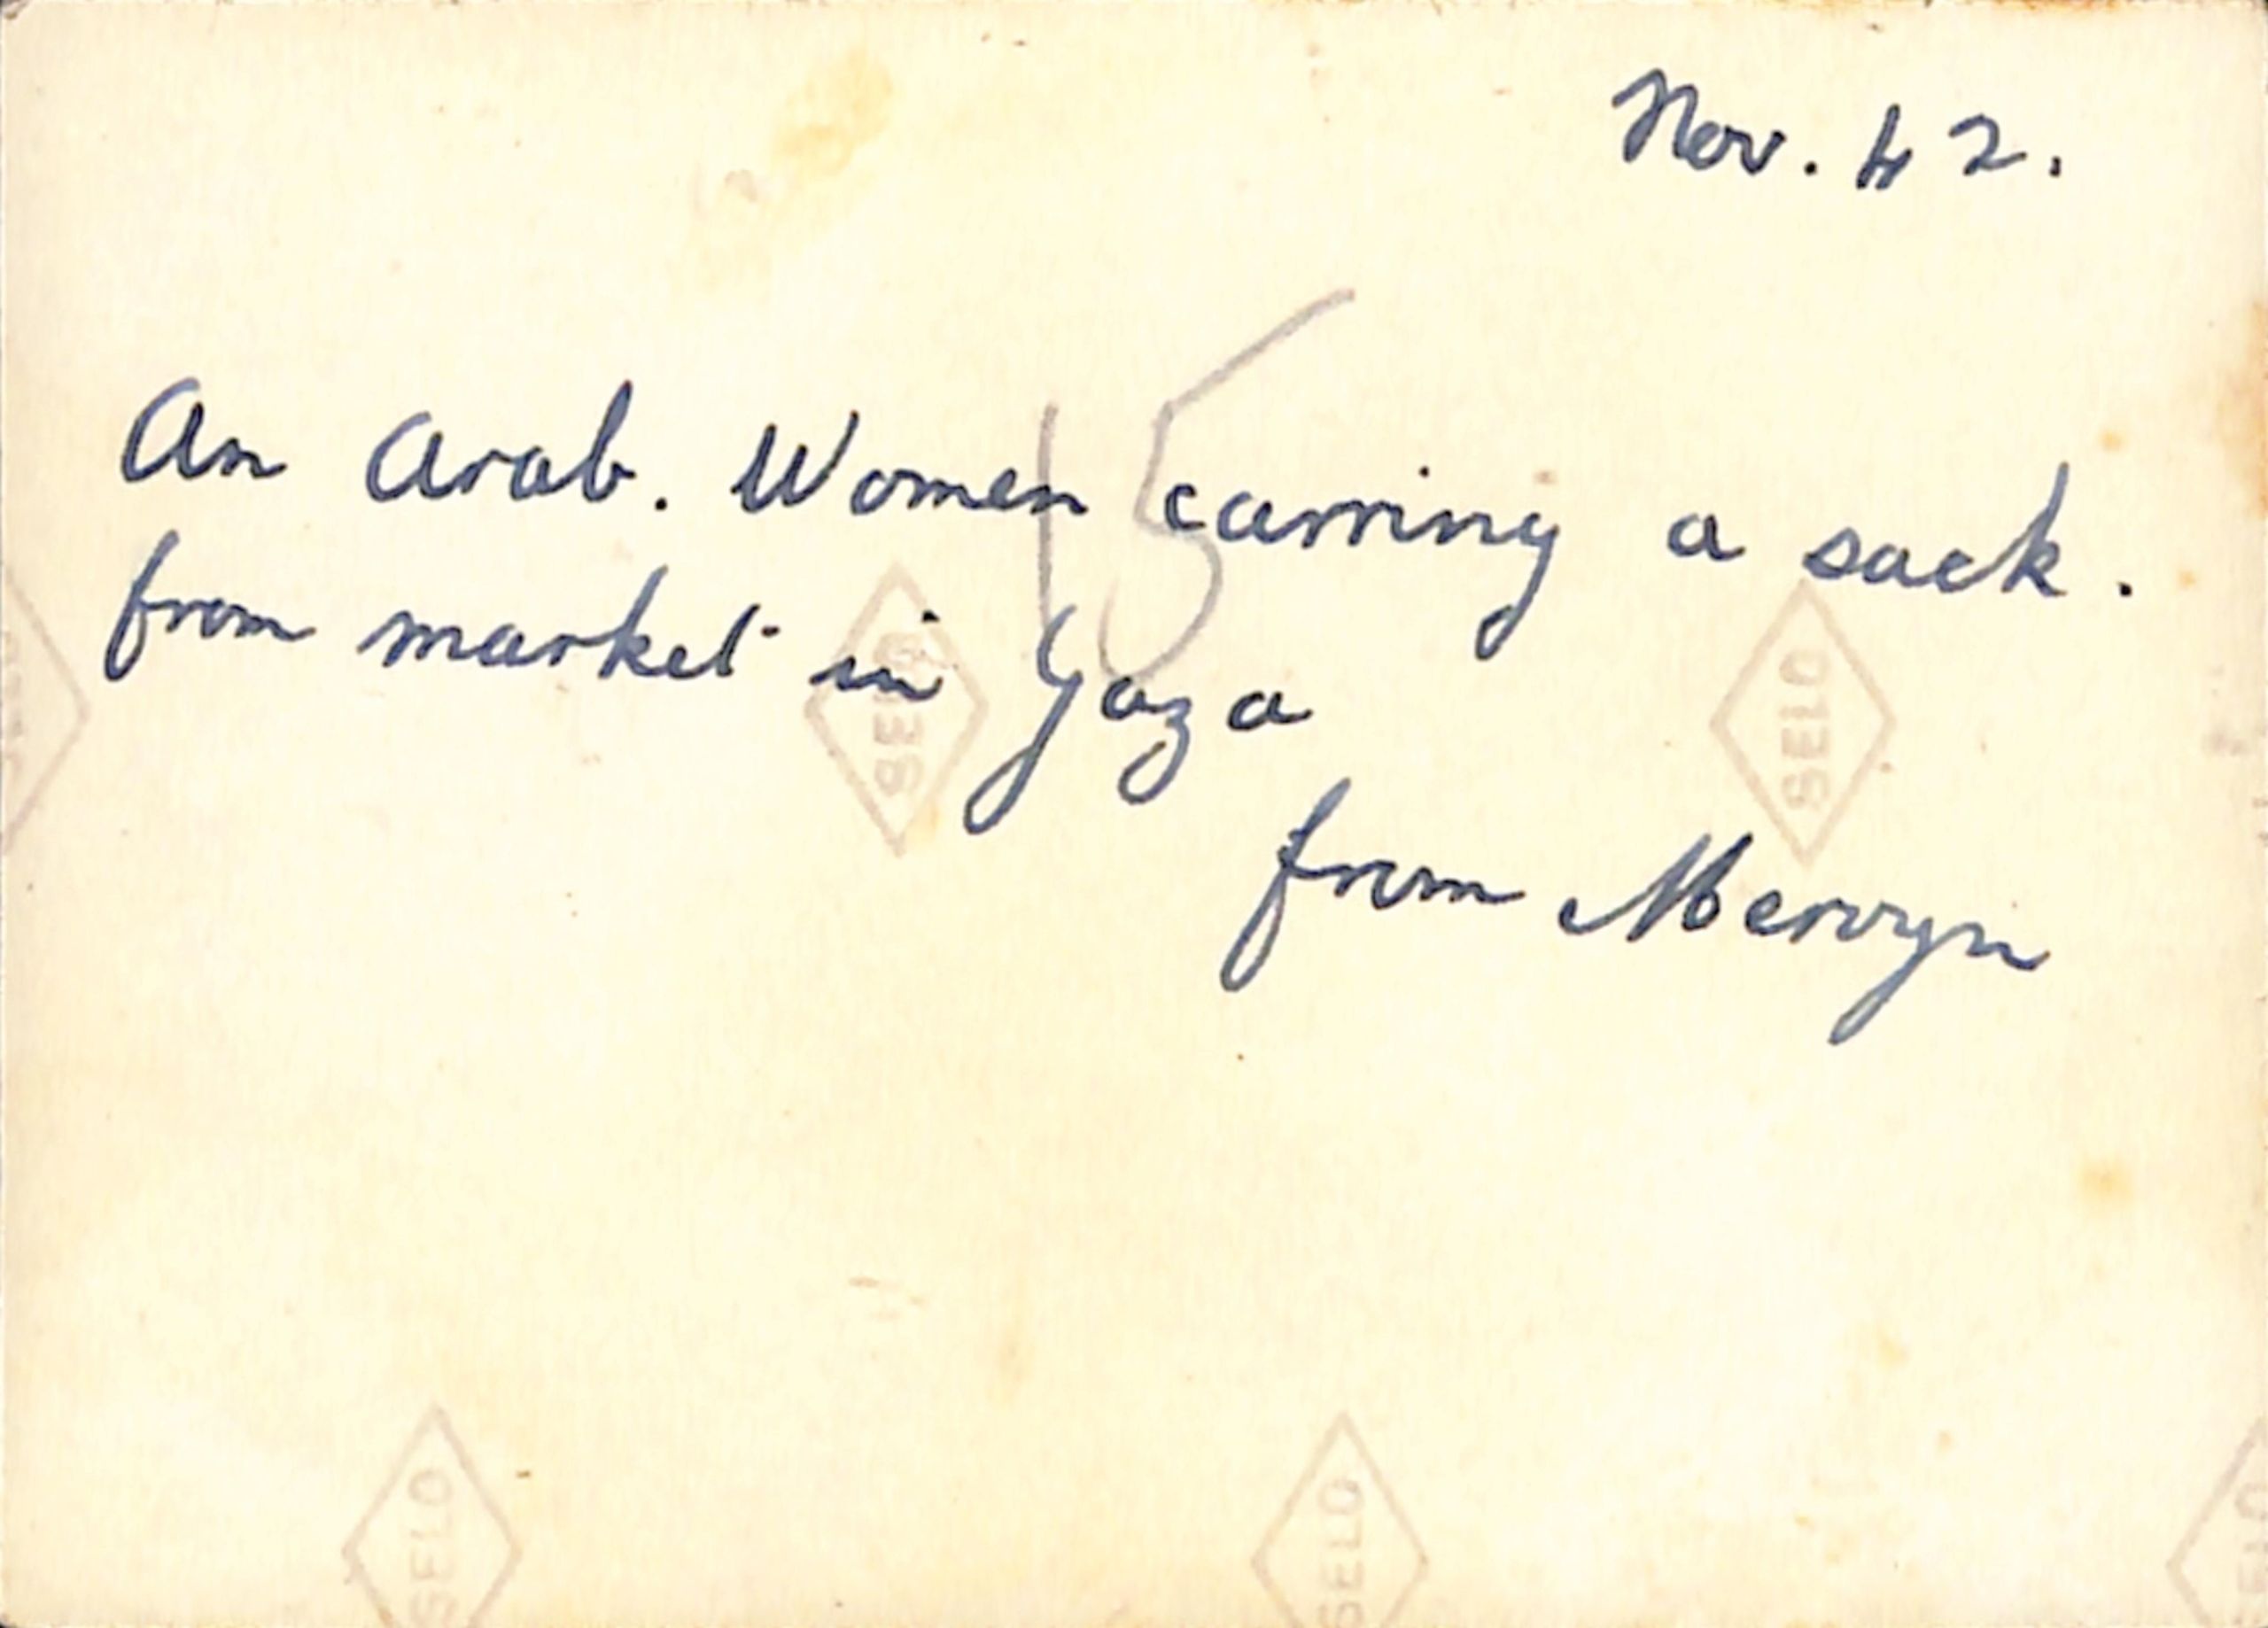 Nov. 42.
15
An Arab. Women carring a sack.
from market in Gaza
from Mervyn
SELO
SELO
SELO
SELO
SELO
SELO